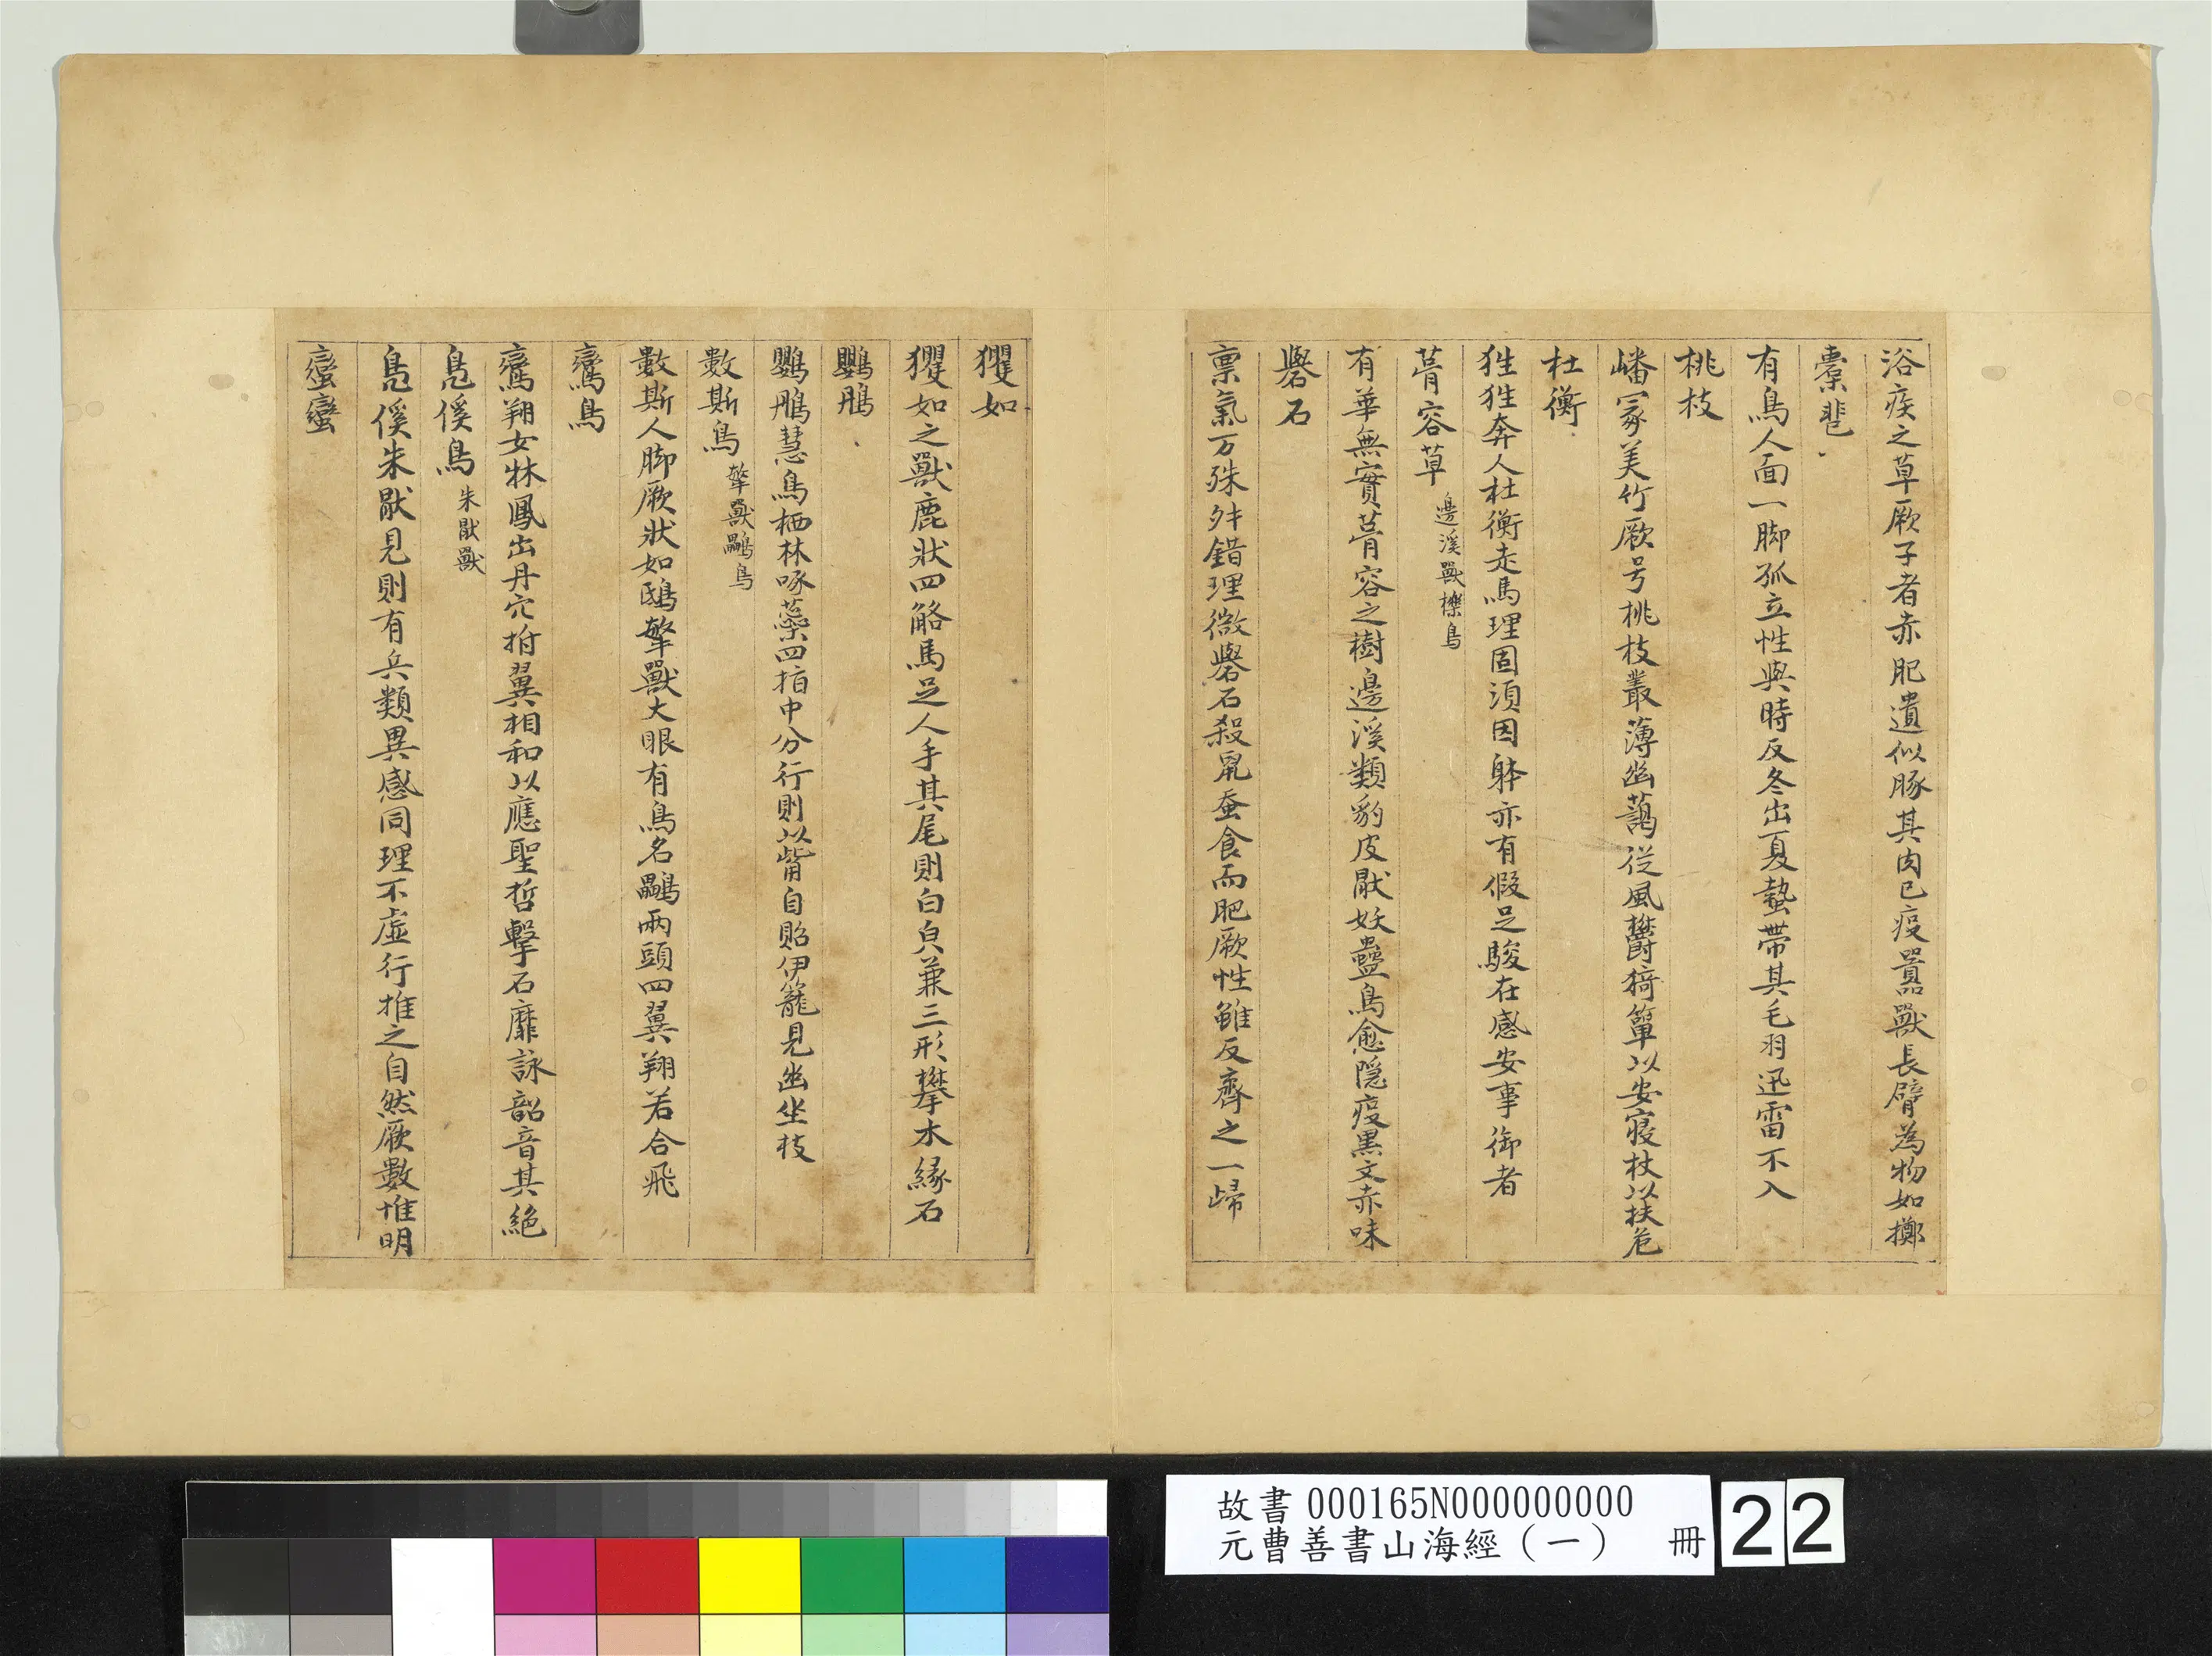 浴疾之草厥子者赤肥遺似豚其肉已疫嚻獸長臂為物如擲
橐𩇯
有鳥人面一脚孤立性與時反冬出夏蟄帶其毛羽迅雷不入
桃枝
嶓冢美竹厥号桃枝叢薄幽藹從風欝猗簞以安寢杖以扶危
杜衡
狌狌奔人杜衡走馬理固湏因躰亦有假足駿在感安事御者
菁容草 邊溪獸櫟鳥
有華無實菁容之樹邊溪類豹皮猒妖蠱鳥愈隱疫黑文赤味
礜石
禀氣万殊舛錯理微礜石殺鼠蚕食而肥厥性雖反齊之一歸
玃如
玃如之獸鹿狀四觡馬足人手其尾則白皃兼三形攀木緣石
鸚䳇
鸚䳇慧鳥栖林啄蘂四指中分行則以觜自貽伊籠見幽坐枝
數斯鳥 㹈獸鸓鳥
數斯人脚厥狀如鴟㹈獸大眼有鳥名鸓兩頭四翼翔若合飛
鸞鳥
鸞翔女牀鳳出丹穴拊翼相和以應聖哲擊石靡詠韶音其絕
鳧徯鳥 朱猒獸
鳧徯朱猒見則有兵類異感同理不虛行推之自然厥數惟明
蠻蠻
故書000165N000000000
元曹善書山海經（一） 冊
22